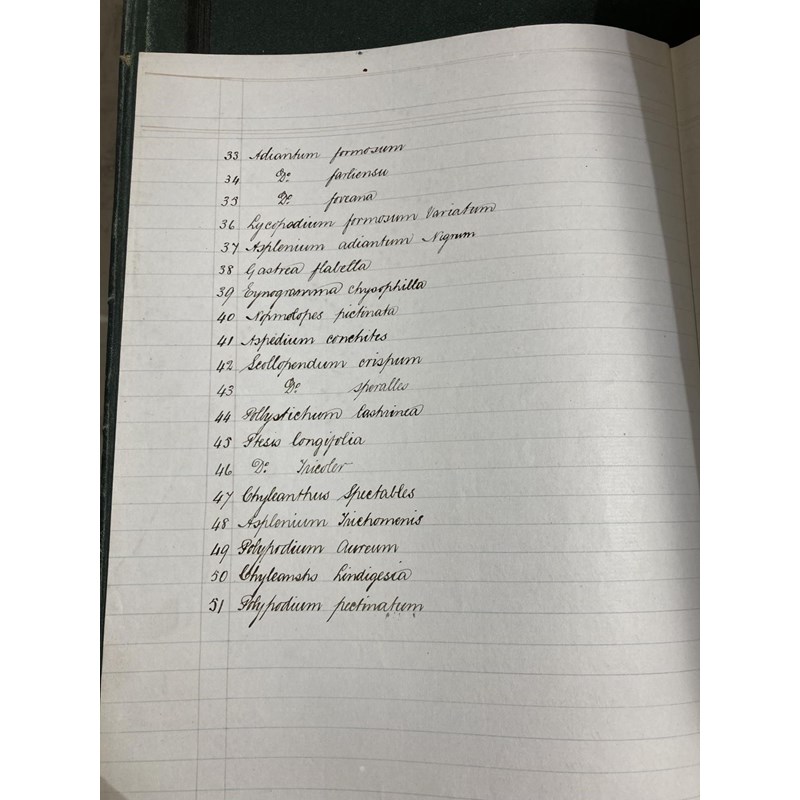 33 Adiantum formosum
34 Do farliensu
35 Do foveana
36 Lycopodium formosum Variatum
37 Asplenium adiantum Nigrum
38 Gastrea flabella
39 Gynogramma chysophilla
40 Nopmolopes pictinata
41 Aspedium conchites
42 Scollopendum crispum
43 Do sporalles
44 Pollystichum Castrinea
45 Ptesis longifolia
46 Do Tricoler
47 Chyleanthus Spectables
48 Asplenium Trichomenis
49 Polypodium Aureum
50 Chyleansts Lindigesia
51 Polypodium pectinatum